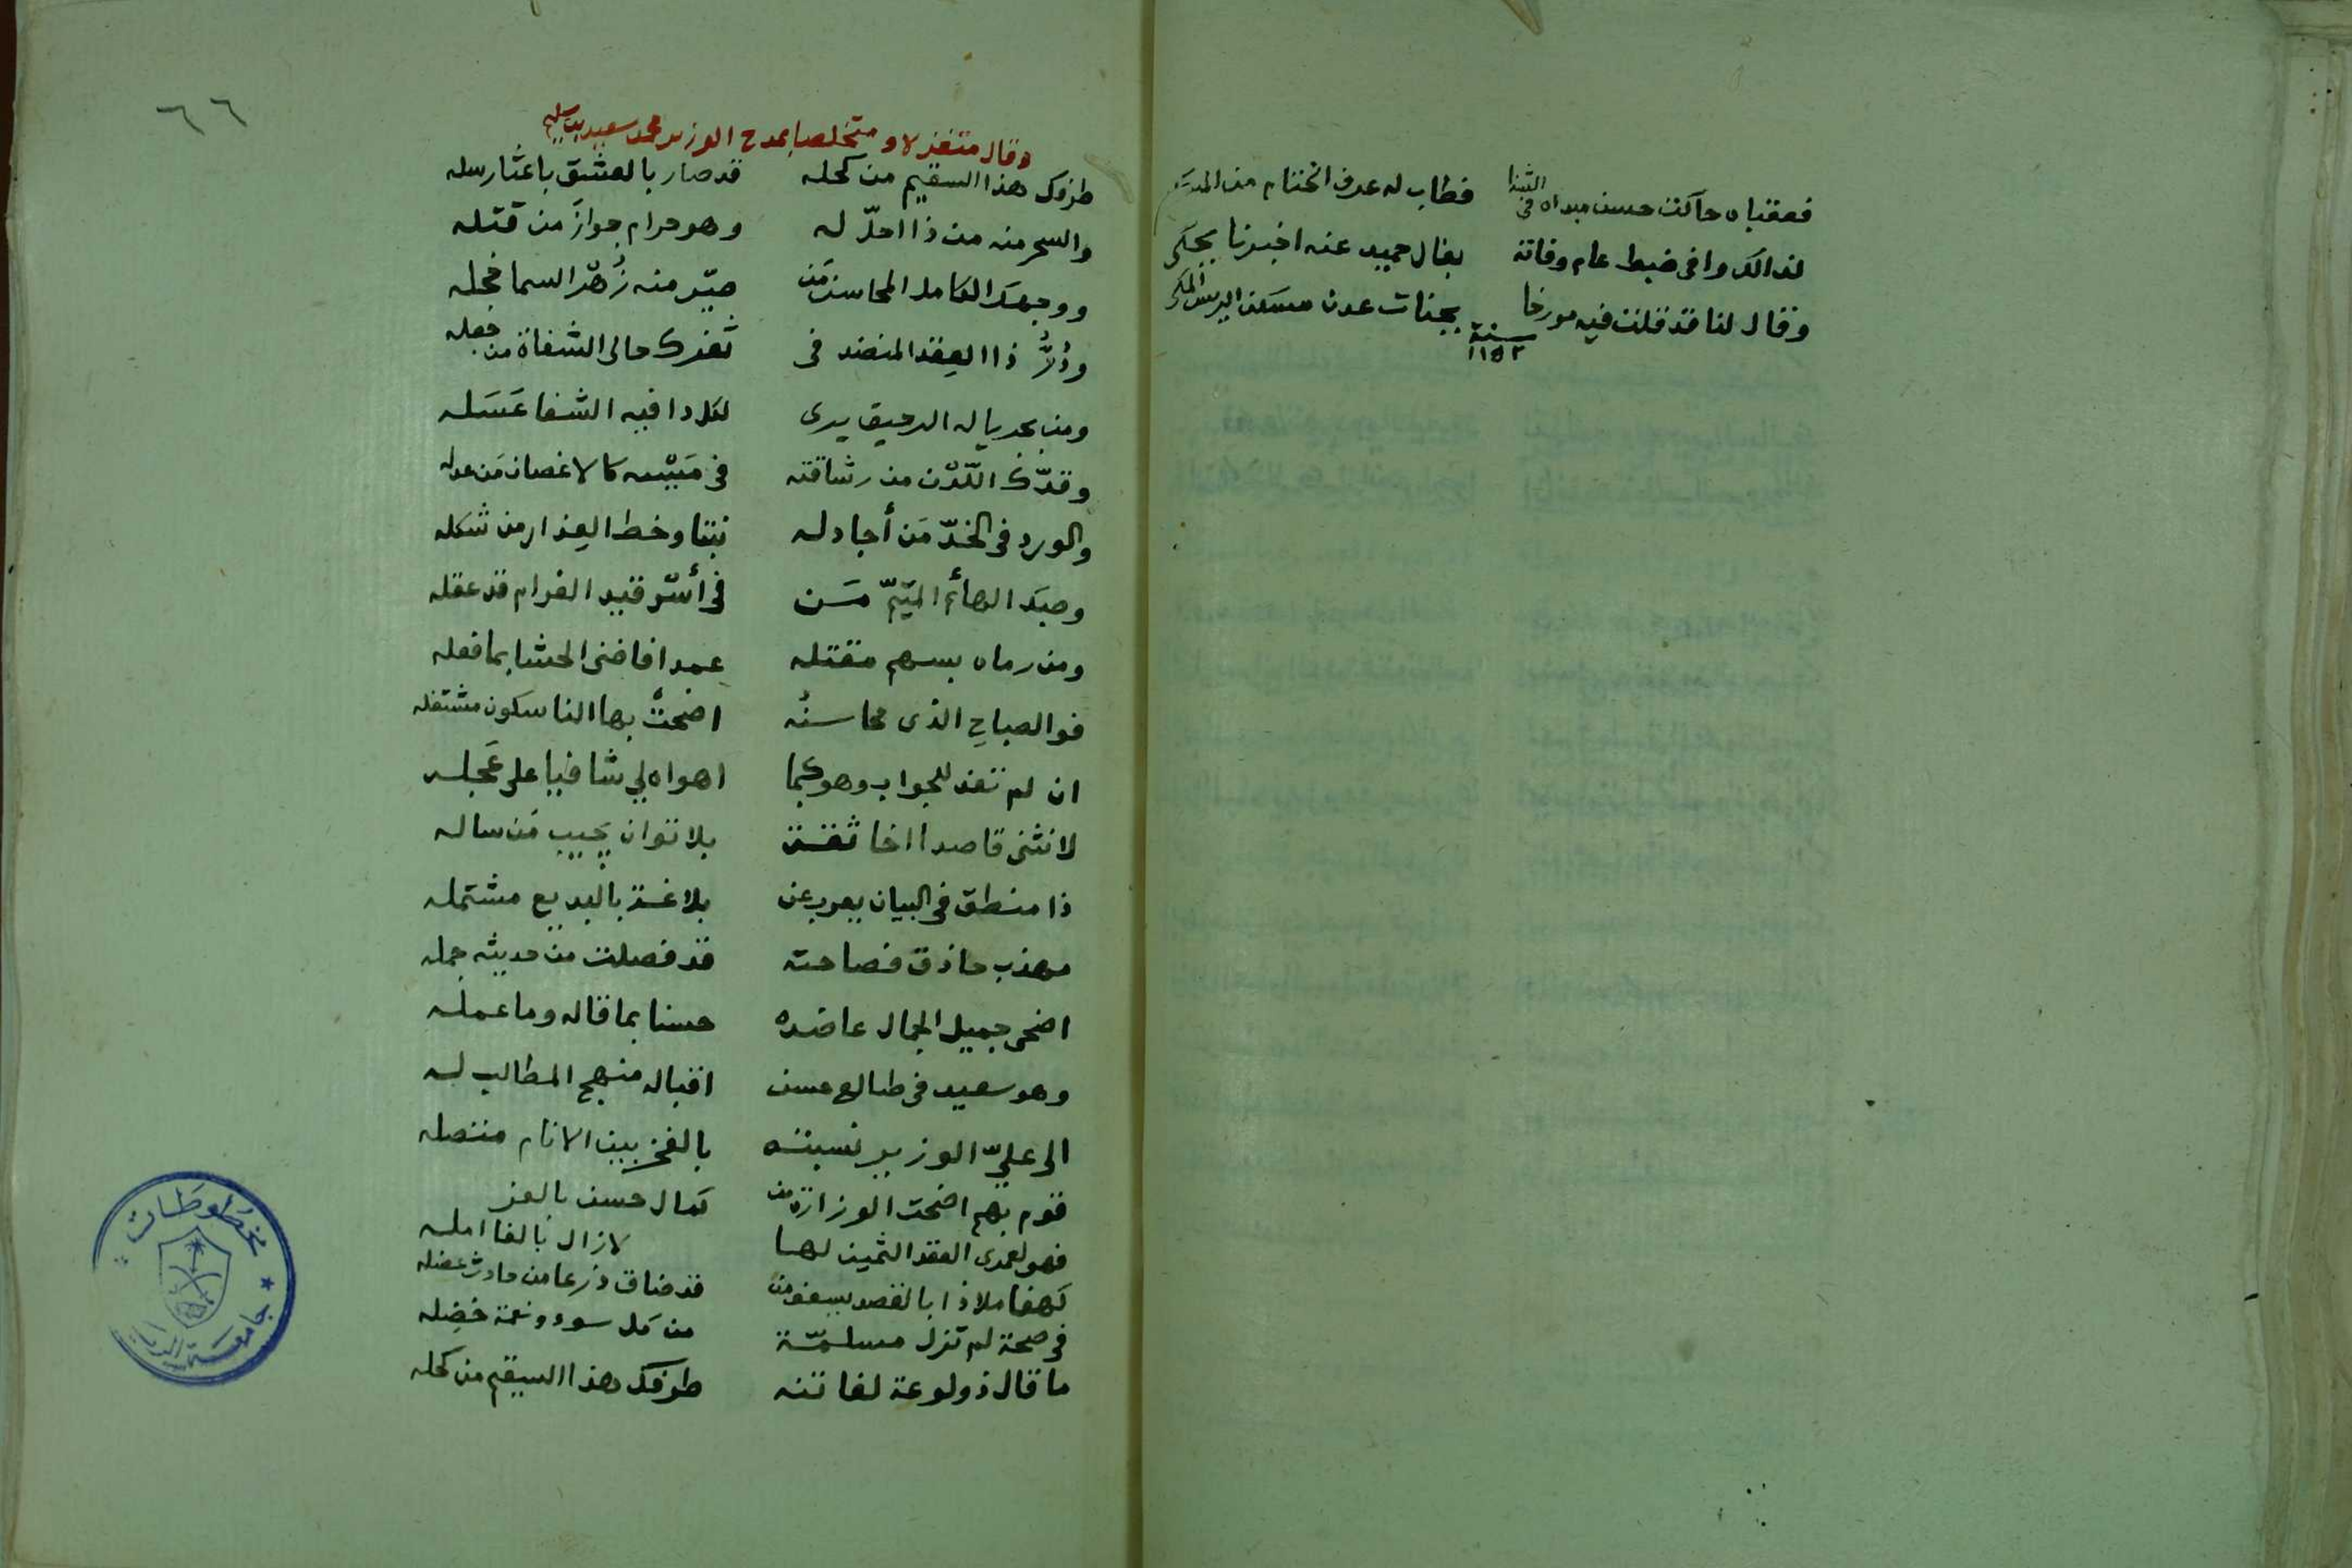 فعقباه حاكت حسن مبداه في الثنا فطاب له عرف الختام من المسك
لذالك وافى ضبط عام وفاته بفال حميد عنه اخبرنا يحكى
وقال لنا قد قلت فيه مورخا بجنات عدن مسكن الريس المكى
سنة ١١٥٢
٦٦
وقال متغزلا ومتخلصا بمدح الوزير محمد سعيد بيك
طرفك هذا السقيم من كحله قد صار بالعشق باعثا رسله
والسحر منه من ذا احلّ له وهو حرام جواز من قتله
ووجهك الكامل المحاسن من صيّر منه زُهْر السما خجله
ودُرُّ ذا العقد المنضد في ثغرك حالى الشفاة من جعله
ومن بجريا له الرحيق يرى لكل دا فيه الشفا عَسَله
وقدّك اللّدْن من رشاقته في مَيْسه كالاغصان مَن عدله
والورد في الخدّ مَن أجاد له نبتا وخط العذار من شكله
وصبك الهائم الميتّم مَن في أسْر قيد الغرام قد عقله
ومن رماه بسهم مقتله عمدا فاضنى الحشا بما فعله
فوالصباح الذى محاسنُه اضحتْ بها الناسكون مشتغله
ان لم تفد للجواب وهو كما اهواه لي شافيا على عَجله
لانثنى قاصدا اخا ثقة بلا توان يجيب مَن ساله
ذا منطق في البيان يعرب عن بلاغة بالبديع مشتمله
مهذب حاذق فصاحته قد فصلت من حديثه جمله
اضحى جميل الجمال عاضده حسنا بما قاله وما عمله
وهو سعيد في طالع حسن اقباله منهج المطالب له
الى عليّ الوزير نسبته بالفخر بين الانام متصله
قوم بهم اضحت الوزارة من كمال حسن بالعز
فهو لعمرى العقد الثمين لها لازال بالغا امله
كهفا ملاذا بالقصد يسعف من قد ضاق ذرعا من حادث عضله
في صحة لم تزل مسلمّة من كل سوء ونعمة خضِله
ما قال ذو لوعة لفاتنه طرفك هذا السقيم من كحله
مخطوطات
جامعة الرياض